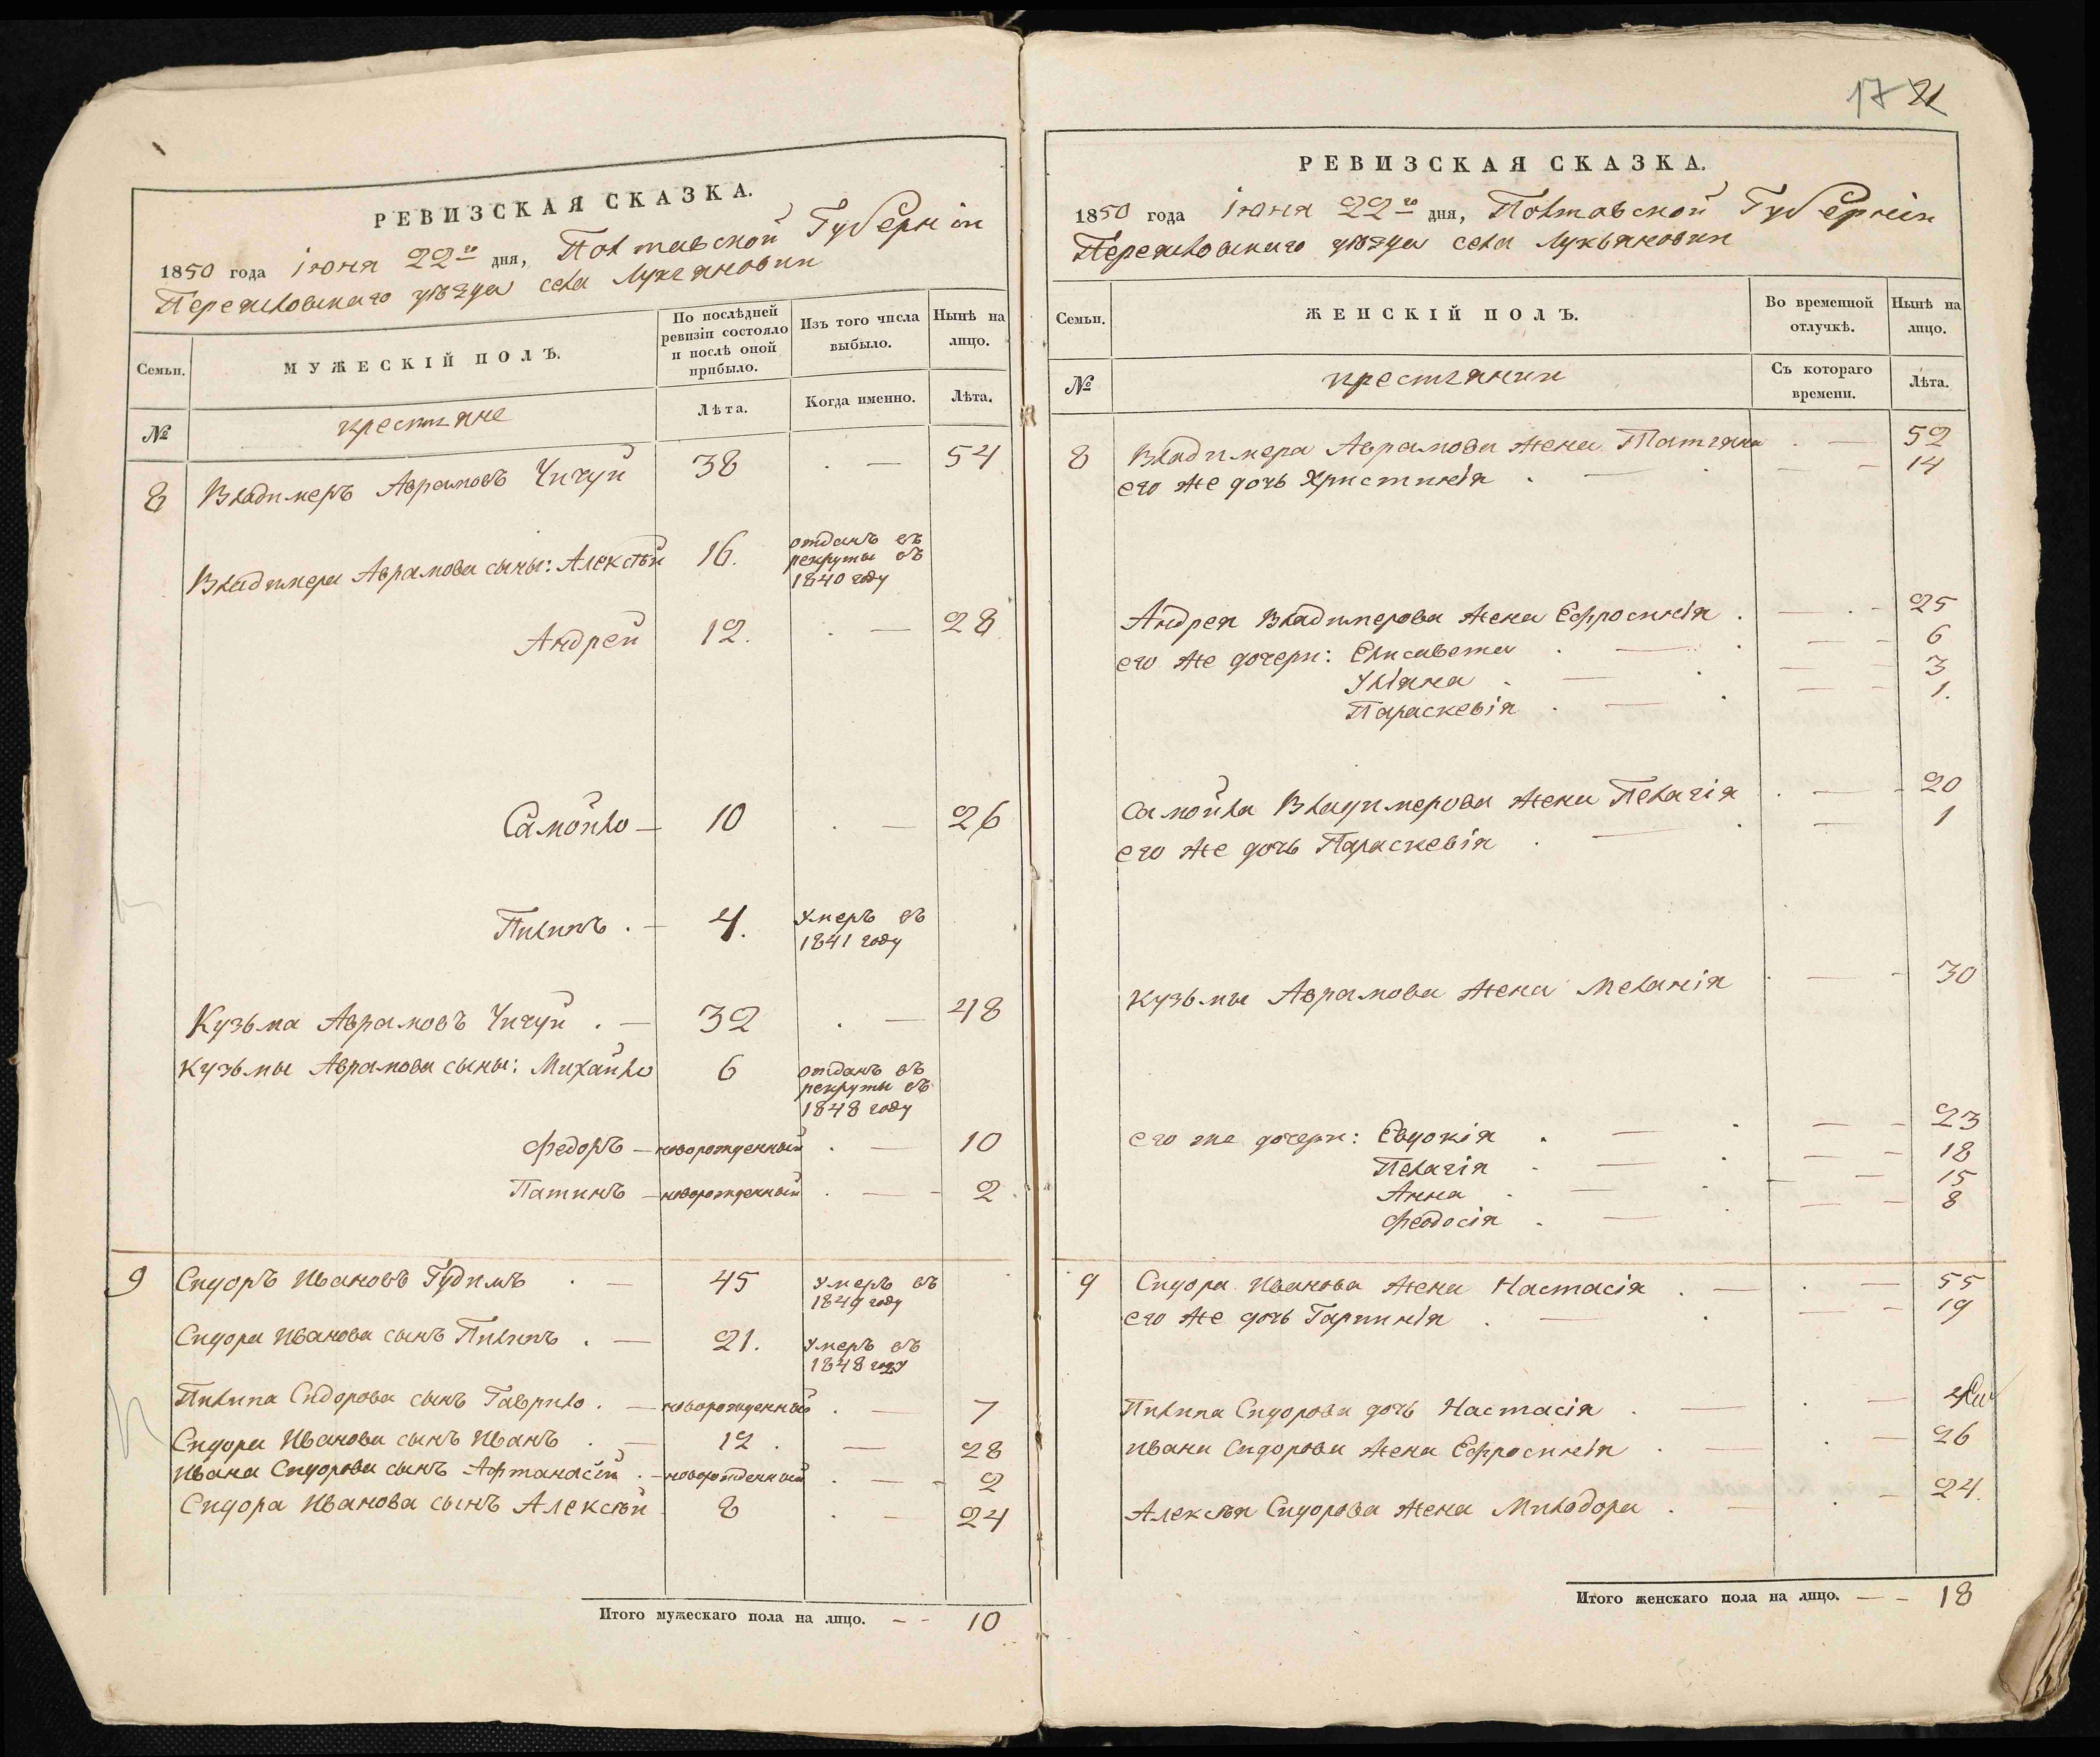 РЕВИЗСКАЯ СКАЗКА.
1850 года іюня 22го дня, Полтавской Губерніи
Переясловскаго уѣзда села Лукьяновки
Семьи. МУЖЕСКІЙ ПОЛЪ. По послѣдней ревизіи состояло и послѣ оной прибыло. Изъ того числа выбыло. Нынѣ на лицо.
№ крестьяне Лѣта. Когда именно. Лѣта.
8 Владимеръ Аврамовъ Чичуй 38 . — 54
Владимера Аврамова сыны: Алексѣй 16. отданъ въ рекруты въ 1840 году
Андрей 12. . — 28
Самойло — 10 . — 26
Пилипъ . — 4. умеръ въ 1841 году
Кузьма Аврамовъ Чичуй . — 32 . — 48
Кузьмы Аврамова сыны: Михайло 6 отданъ въ рекруты въ 1848 году
Федоръ — новорожденный . — 10
новорожденный . — - 2
9 Сидоръ Ивановъ Гудимъ . — 45 умеръ въ 1849 году
Сидора Иванова сынъ Пилипъ . — 21. умеръ въ 1848 году
Пилипа Сидорова сынъ Гаврило . — новорожденный . — 7
Сидора Иванова сынъ Иванъ . — 12 . — 28
Ивана Сидорова сынъ Афтанасій . — новорожденный . — - 2
Сидора Иванова сынъ Алексѣй 8 . — 24
Итого мужескаго пола на лицо. — - 10
17 21
РЕВИЗСКАЯ СКАЗКА.
1850 года іюня 22го дня, Полтавской Губерніи
Переясловскаго уѣзда села Лукьяновки
Семьи. ЖЕНСКІЙ ПОЛЪ. Во временной отлучкѣ. Нынѣ на лицо.
№ крестьянки Съ котораго времени. Лѣта.
8 Владимера Аврамова жена Татіяна . — 52
его же дочь Христинія . — . — - 14
Андрея Владимерова жена Ефросинія . — . - 25
его же дочери: Елисавета . — . — - 6
Уліяна . — . — - 3
Параскевія . — . — - 1.
Самойла Владимерова жена Пелагія . — - 20
его же дочь Параскевія . — . — 1
Кузьмы Аврамова жена Меланія . — - 30
его же дочери: Евдокія . — . — - 23
Пелагія . — . — - 18
Анна . — . — - 15
Феодосія . — . — - 8
9 Сидора Иванова жена Настасія . — . — 55
его же дочь Гарпинія . — . — - 19
Пилипа Сидорова дочь Настасія . — . —
Ивана Сидорова жена Ефросинія . — . — 26
Алексѣя Сидорова жена Милодора . — . - 24.
Итого женскаго пола на лицо. — - 18